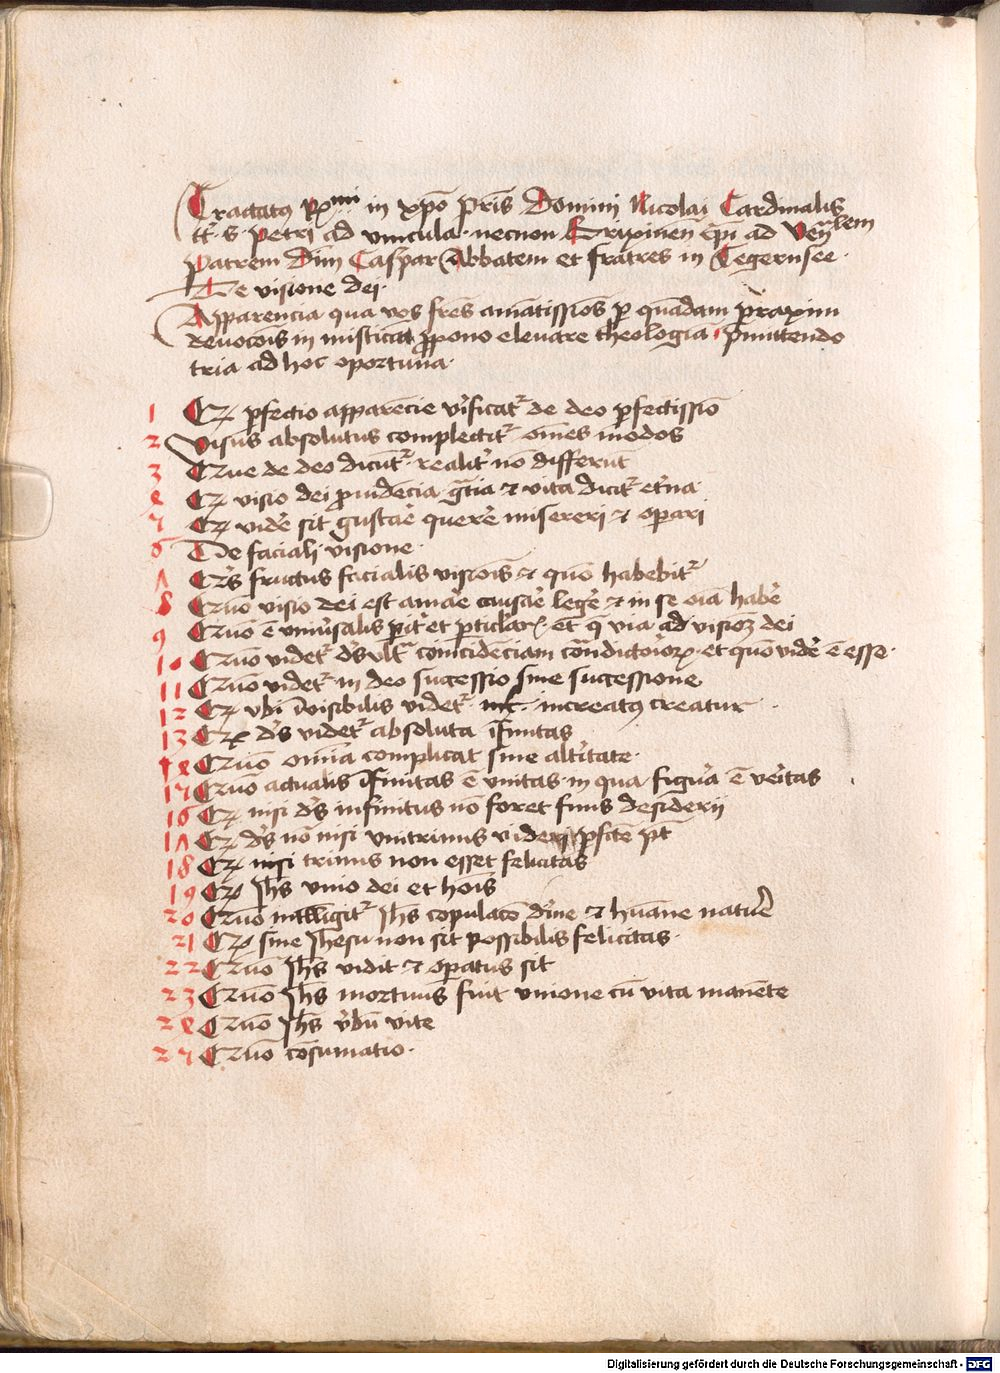 Tractatus Rmi in xpo pris Domini Nicolai Cardinalis
tt. s. petri ad vincula. necnon Brixinen epi ad Venlem
patrem Dnm Caspar Abbatem et fratres in Tegernsee.
De visione dei.
Apparencia qua vos fres amatissimos per quandam praxim
devocois in misticam propono elevare theologiam pmittendo
tria ad hoc oportuna.
1 Qz perfectio apparencie vificatr de deo perfectissimo
2 Visus absolutus complectitr omes modos
3 Que de deo dicuntr realitr non differunt
4 Qz visio dei providencia gratia et vita dicitr eterna
5 Qz videre sit gustare querere misereri et operari
6 De faciali visione.
7 Quis fructus facialis visiois et quo habebitr
8 Quo visio dei est amare causare legere et in se oia habere
9 Quo e universalis pitr et perticularz et q via ad visionez dei
10 Quo videtr deus ultra coincidenciam contradictoriorz et quo videre e esse.
11 Quo videtr in deo successio sine successione
12 Qz ubi invisibilis videtr. increatus creatur.
13 Qz deus videtr absoluta infinitas
14 Quo omnia complicat sine alteritate.
15 Quo actualis infinitas e unitas in qua figura e veritas
16 Qz nisi deus infinitus non foret finis desiderii
17 Qz deus no nisi unitrinus videri perfecte pt
18 Qz nisi trinus non esset felicitas
19 Quo Jhs unio dei et hois
20 Quo intelligitr Jhs copulaco divine et humane nature
21 Quo sine Jhesu non sit possibilis felicitas.
22 Quo Jhs vidit et operatus sit
23 Quo Jhs mortuus fuit unione cum vita manente
24 Quo Jhs verbum vite
25 Quo consumatio.
Digitalisierung gefördert durch die Deutsche Forschungsgemeinschaft - DFG